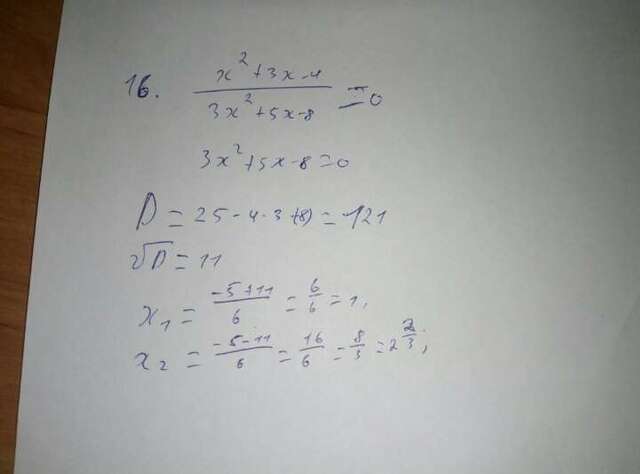 16. x²+3x-4 / 3x²+5x-8 = 0
3x²+5x-8=0
D = 25-4·3·(-8) = 121
√D = 11
x₁ = -5+11/6 = 6/6 = 1,
x₂ = -5-11/6 = 16/6 = 8/3 = 2 2/3;